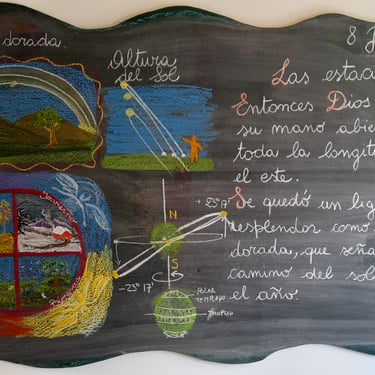 dorada.
Altura
del Sol
8 J
Las estac
Entonces Dios
su mano abie
toda la longit
el este.
Se quedó un lig
resplendos como
dorada, que seña
camino del sol
el año.
Invierno
Primavera
+23º17'
N
S
-23º17'
POLAR
TEMPLADO
TROPICO